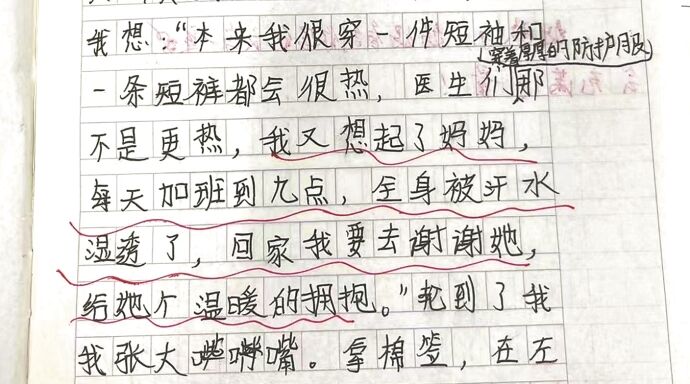 我想:“本来我很穿一件短袖和
穿着厚厚的防护服
一条短裤都会很热,医生们那
不是更热,我又想起了妈妈,
每天加班到九点,全身被汗水
湿透了,回家我要去谢谢她,
给她个温暖的拥抱。”轮到了我
我张大嘴。拿棉签,在左